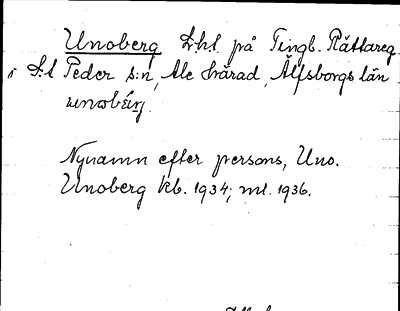 Unoberg Lht. på Tingb. Rättareg
i S:t Peder s:n, Ale härad, Älfsborgs län
Nynamn efter persons, Uno.
Unoberg kb. 1934; ml. 1936.